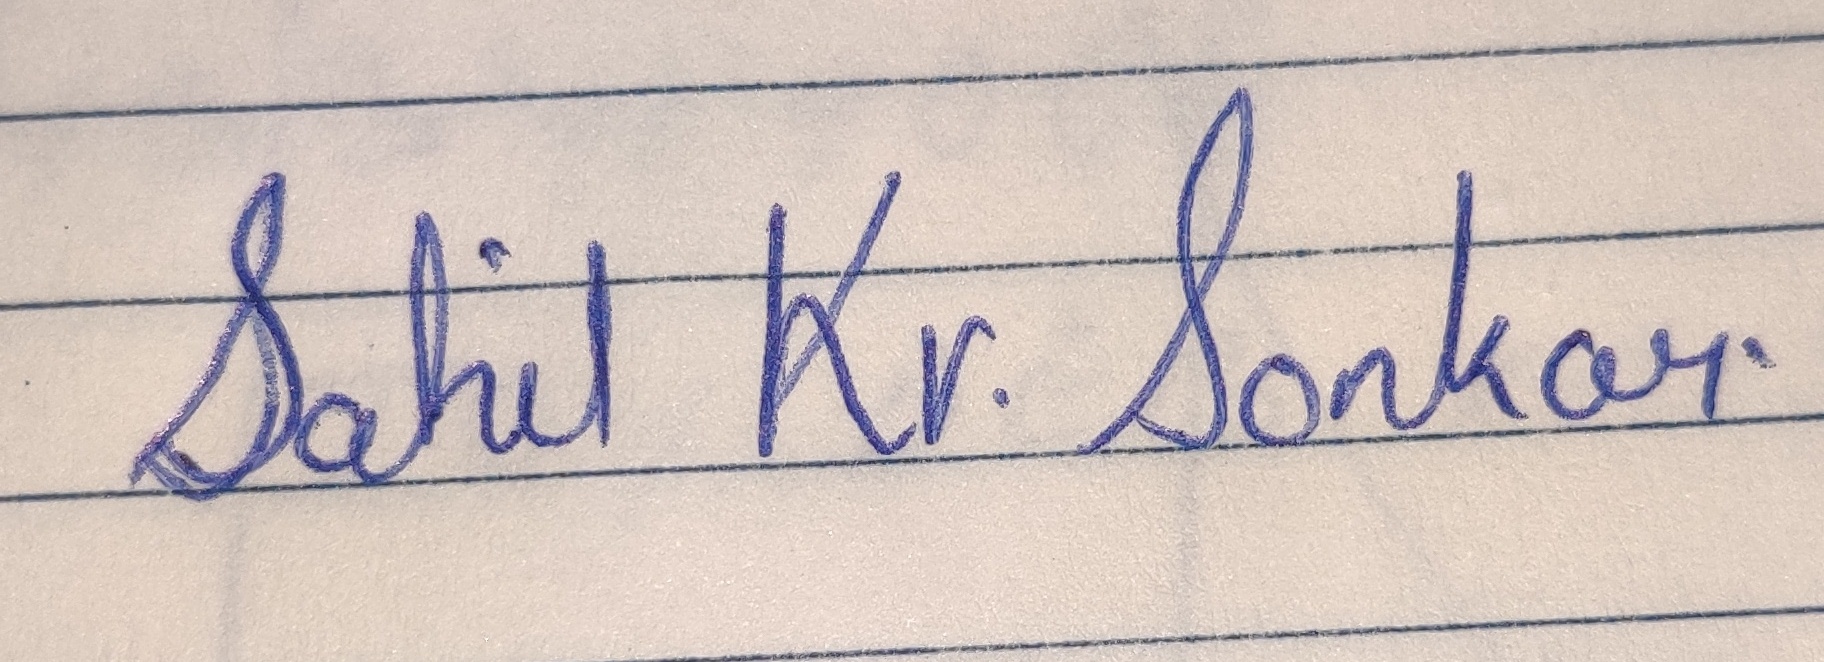 Sahil Kr. Sonkar.